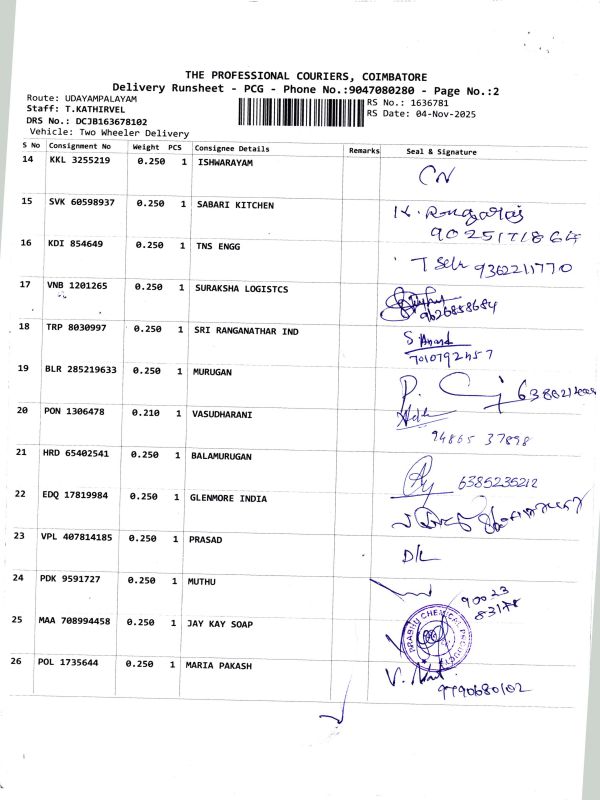 THE PROFESSIONAL COURIERS, COIMBATORE
Delivery Runsheet - PCG - Phone No.:9047080280 - Page No.:2
Route: UDAYAMPALAYAM
Staff: T.KATHIRVEL
DRS No.: DCJB163678102
Vehicle: Two Wheeler Delivery
RS No.: 1636781
RS Date: 04-Nov-2025
S No Consignment No Weight PCS Consignee Details Remarks Seal & Signature
14 KKL 3255219 0.250 1 ISHWARAYAM
15 SVK 60598937 0.250 1 SABARI KITCHEN
16 KDI 854649 0.250 1 TNS ENGG 9362211770
17 VNB 1201265 0.250 1 SURAKSHA LOGISTCS 9626858684
18 TRP 8030997 0.250 1 SRI RANGANATHAR IND
19 BLR 285219633 0.250 1 MURUGAN
20 PON 1306478 0.210 1 VASUDHARANI
94865 37898
21 HRD 65402541 0.250 1 BALAMURUGAN 6385236212
22 EDQ 17819984 0.250 1 GLENMORE INDIA
23 VPL 407814185 0.250 1 PRASAD D/L
24 PDK 9591727 0.250 1 MUTHU
25 MAA 708994458 0.250 1 JAY KAY SOAP
PRABHU CHEMICAL PRODUCTS
26 POL 1735644 0.250 1 MARIA PAKASH
9790680102